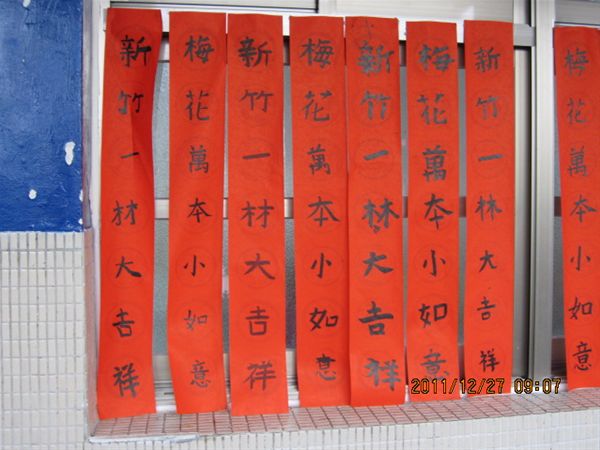 梅花萬本小如意
新竹一林大吉祥
梅花萬本小如意
新竹一林大吉祥
梅花萬本小如意
新竹一材大吉祥
梅花萬本小如意
新竹一材大吉祥
2011/12/27 09:07